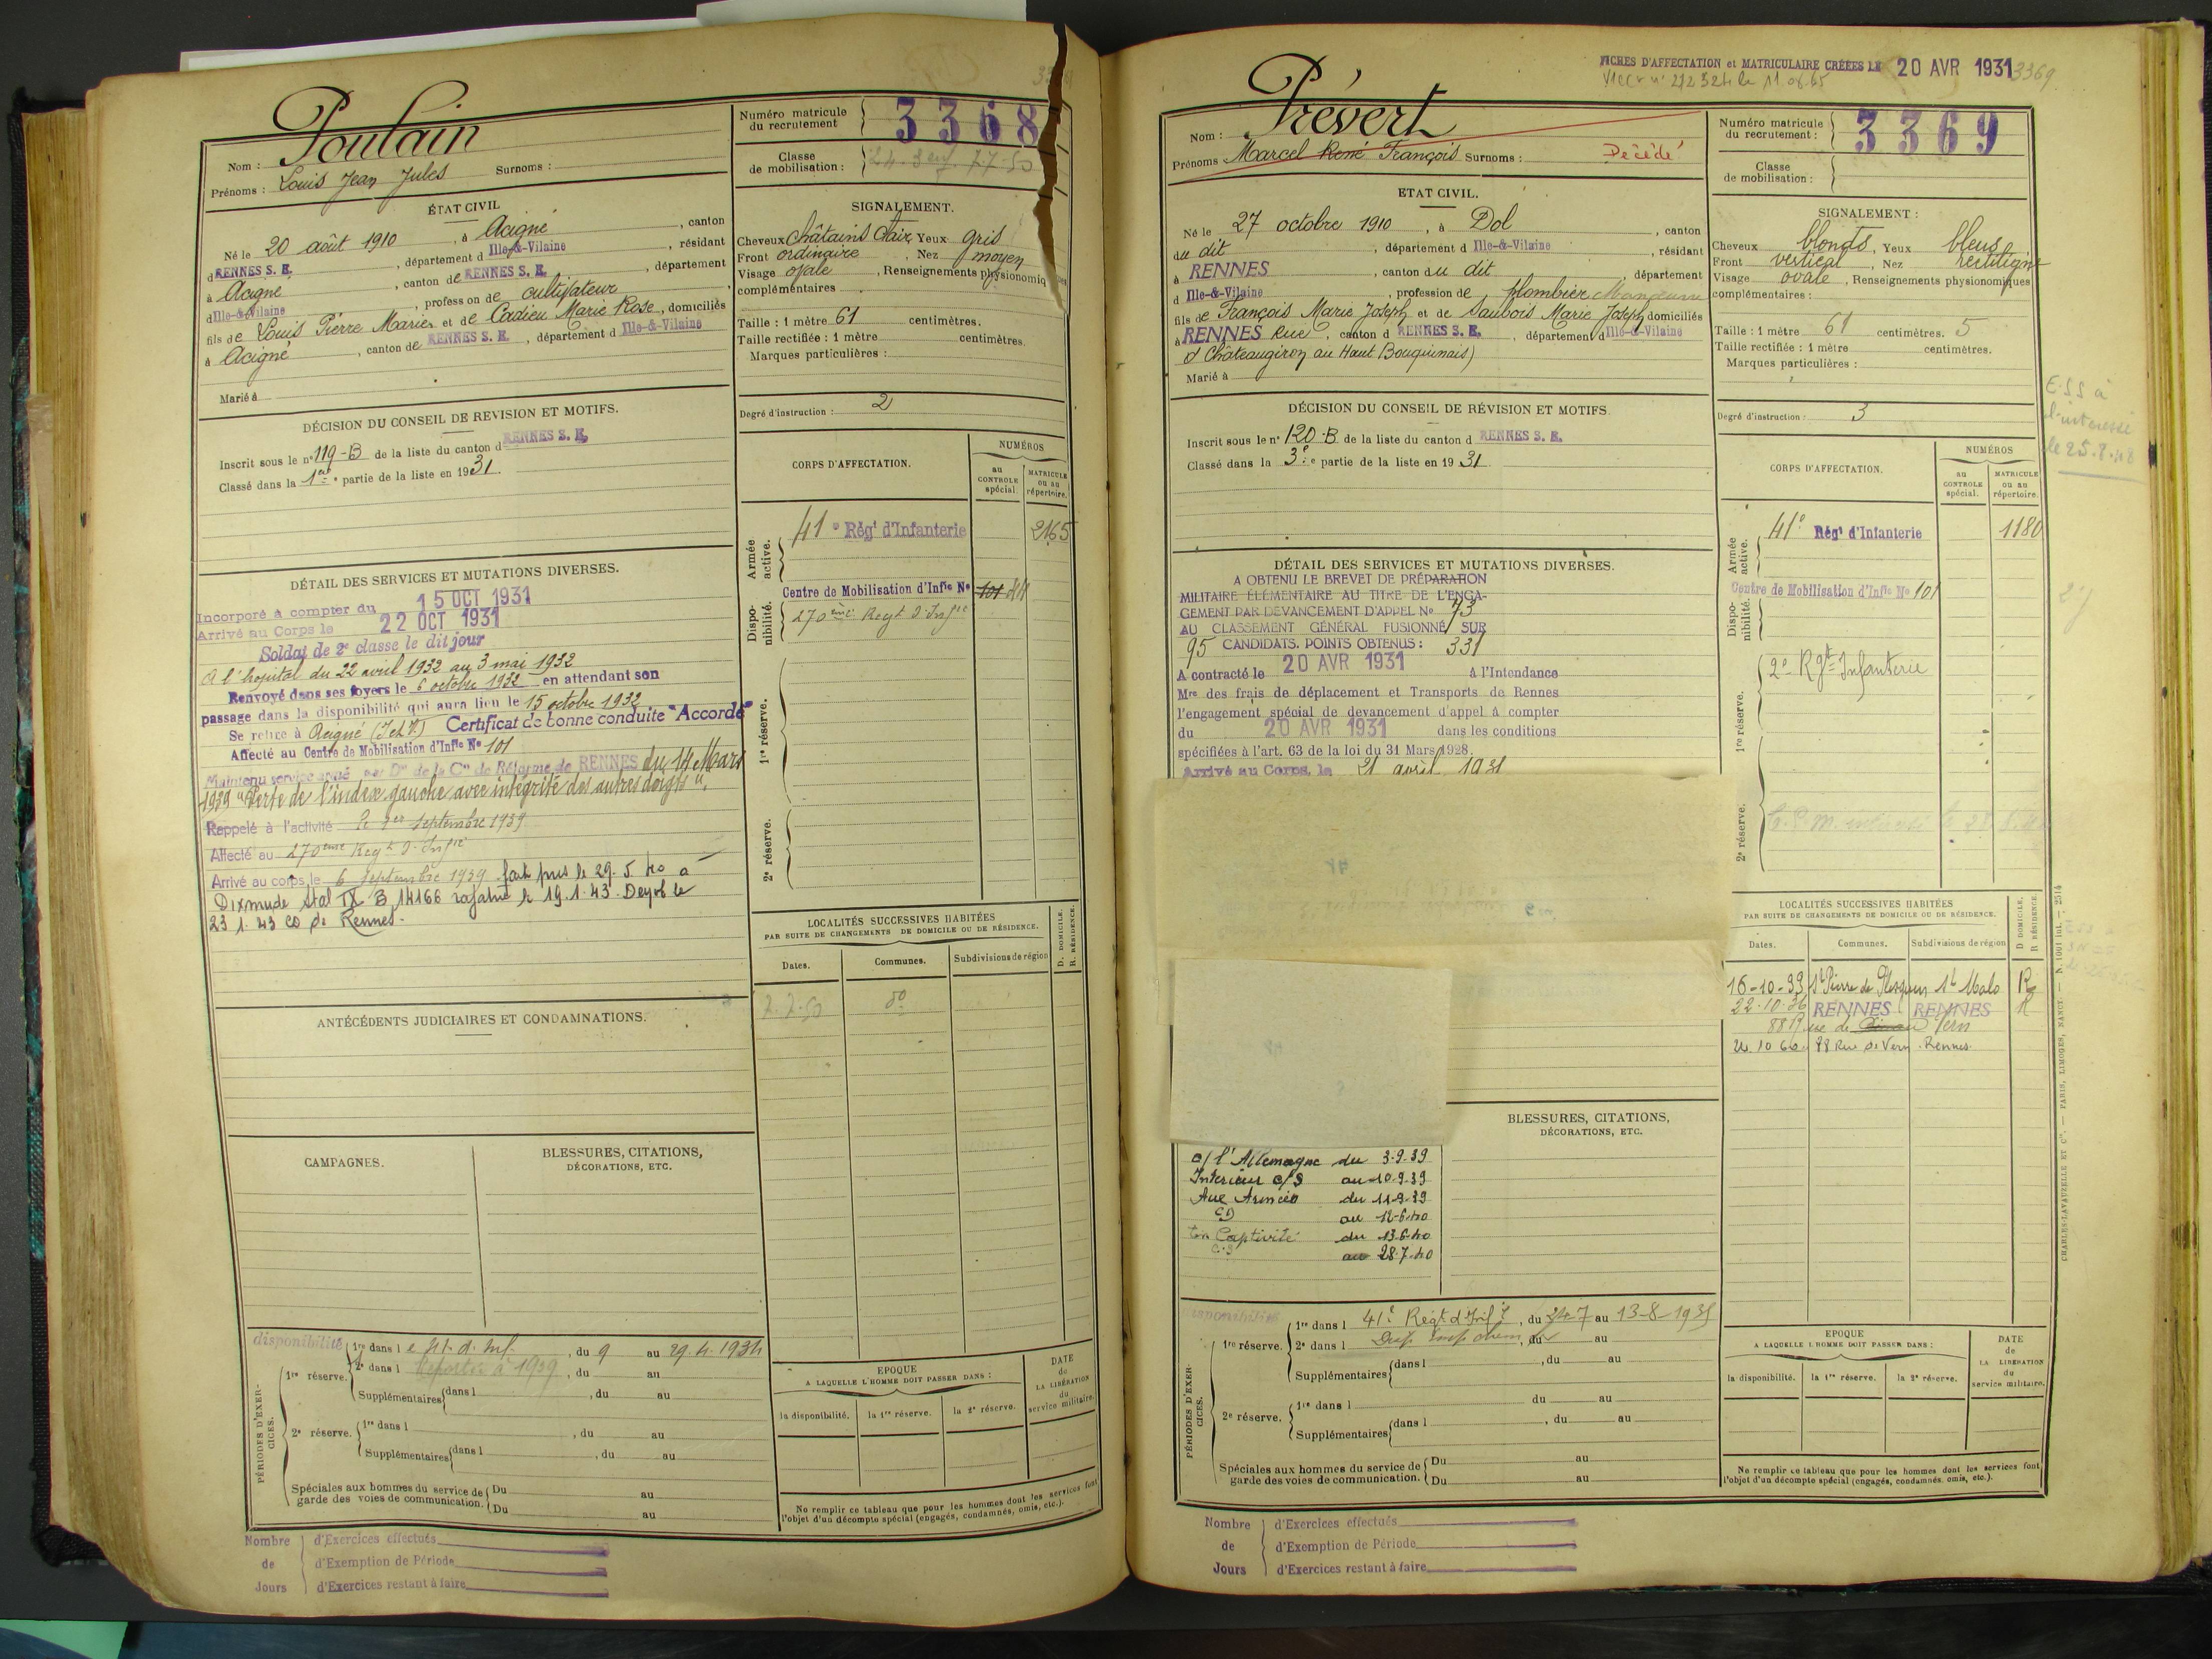 Poulain
Nom :
Prénoms : Louis Jean Jules Surnoms :
Numéro matricule du recrutement 3368
Classe de mobilisation :
ÉTAT CIVIL
Né le 20 août 1910, à Acigné, canton
d RENNES S. E., département d Ille-&-Vilaine, résidant
à Acigné, canton de RENNES S. E., département
d Ille-&-Vilaine, profession de cultivateur
fils de Louis Pierre Marie et de Cadieu Marie Rose, domiciliés
à Acigné, canton de RENNES S. E., département d Ille-&-Vilaine
Marié à
SIGNALEMENT.
Cheveux châtains clair, Yeux gris
Front ordinaire, Nez moyen
Visage ovale, Renseignements physionomiques
complémentaires
Taille : 1 mètre 61 centimètres.
Taille rectifiée : 1 mètre centimètres.
Marques particulières :
Degré d'instruction : 2
DÉCISION DU CONSEIL DE REVISION ET MOTIFS.
Inscrit sous le n° 119-B de la liste du canton d RENNES S. E.
Classé dans la 1ère partie de la liste en 1931.
CORPS D'AFFECTATION.
NUMÉROS
au CONTROLE spécial.
MATRICULE ou au répertoire.
Armée active.
41e Régt d'Infanterie 2165
Disponibilité.
Centre de Mobilisation d'Infie N° 101
270ème Regt d'Infie
1re réserve.
2e réserve.
DÉTAIL DES SERVICES ET MUTATIONS DIVERSES.
Incorporé à compter du 15 OCT 1931
Arrivé au Corps le 22 OCT 1931
Soldat de 2e classe le dit jour
A l'hopital du 22 avril 1932 au 3 mai 1932
Renvoyé dans ses foyers le 6 octobre 1932 en attendant son
passage dans la disponibilité qui aura lieu le 15 octobre 1932
Se retire à Acigné (I et V.) Certificat de bonne conduite "Accordé"
Affecté au Centre de Mobilisation d'Infie N° 101
Maintenu service armé par Don de la Con de Réforme de RENNES du 14 Mars
1939 "Perte de l'index gauche avec intégrité des autres doigts".
Rappelé à l'activité le 1er Septembre 1939
Affecté au 270ème Regt d'Infie
Arrivé au corps le 6 Septembre 1939 fait pris le 29.5.40 à
Dixmude Stal IX B 14166 rapatrié le 19.1.43 Demob le
23.1.43 CD de Rennes.
LOCALITÉS SUCCESSIVES HABITÉES
PAR SUITE DE CHANGEMENTS DE DOMICILE OU DE RÉSIDENCE.
Dates. Communes. Subdivisions de région D. DOMICILE. R. RÉSIDENCE.
ANTÉCÉDENTS JUDICIAIRES ET CONDAMNATIONS.
CAMPAGNES.
BLESSURES, CITATIONS,
DÉCORATIONS, ETC.
disponibilité
PÉRIODES D'EXERCICES.
1re réserve.
1re dans l, du 9 au 29.4.1934
2e dans l à 1939, du au
Supplémentaires dans l, du au
2e réserve.
1re dans l, du au
Supplémentaires dans l, du au
Spéciales aux hommes du service de garde des voies de communication.
Du au
Du au
EPOQUE
A LAQUELLE L'HOMME DOIT PASSER DANS :
la disponibilité. la 1re réserve. la 2e réserve.
DATE de LA LIBÉRATION du service militaire.
Ne remplir ce tableau que pour les hommes dont les services font
l'objet d'un décompte spécial (engagés, condamnés, omis, etc.).
Nombre de Jours
d'Exercices effectués
d'Exemption de Période
d'Exercices restant à faire
FICHES D'AFFECTATION et MATRICULAIRE CRÉÉES LE 20 AVR 1931
3369
Prévert
Nom :
Prénoms Marcel René François Surnoms : Décédé
Numéro matricule du recrutement : 3369
Classe de mobilisation :
ETAT CIVIL.
Né le 27 octobre 1910, à Dol, canton
du dit, département d Ille-&-Vilaine, résidant
à RENNES, canton du dit, département
d Ille-&-Vilaine, profession de plombier
fils de François Marie Joseph et de Saubois Marie Joseph domiciliés
à RENNES Rue, canton d RENNES S. E., département d Ille-&-Vilaine
d Châteaugiron au Haut Bouquinais)
Marié à
SIGNALEMENT :
Cheveux blonds, Yeux bleus
Front vertical, Nez rectiligne
Visage ovale, Renseignements physionomiques
complémentaires :
Taille : 1 mètre 61 centimètres. 5
Taille rectifiée : 1 mètre centimètres.
Marques particulières :
Degré d'instruction : 3
E.S.S à
l'interessé
le 25.8.48
DÉCISION DU CONSEIL DE RÉVISION ET MOTIFS.
Inscrit sous le n° 120-B de la liste du canton d RENNES S. E.
Classé dans la 3e partie de la liste en 1931
CORPS D'AFFECTATION.
NUMÉROS
au CONTROLE spécial.
MATRICULE ou au répertoire.
Armée active.
41e Régt d'Infanterie 1180
Disponibilité.
Centre de Mobilisation d'Infie N° 101
1re réserve.
2e Rgt Infanterie
2e réserve.
DÉTAIL DES SERVICES ET MUTATIONS DIVERSES.
A OBTENU LE BREVET DE PRÉPARATION
MILITAIRE ÉLÉMENTAIRE AU TITRE DE L'ENGA-
GEMENT PAR DEVANCEMENT D'APPEL N° 73
AU CLASSEMENT GÉNÉRAL FUSIONNÉ SUR
95 CANDIDATS. POINTS OBTENUS : 331
A contracté le 20 AVR 1931 à l'Intendance
Mre des frais de déplacement et Transports de Rennes
l'engagement spécial de devancement d'appel à compter
du 20 AVR 1931 dans les conditions
spécifiées à l'art. 63 de la loi du 31 Mars 1928.
Arrivé au Corps, le 21 avril 1931
LOCALITÉS SUCCESSIVES HABITÉES
PAR SUITE DE CHANGEMENTS DE DOMICILE OU DE RÉSIDENCE.
Dates. Communes. Subdivisions de région D DOMICILE. R RÉSIDENCE.
16-10-33 St Pierre de Plesguen St Malo R
22-10-36 RENNES RENNES R
88 Rue de Vern
10 60 88 Rue de Vern Rennes
BLESSURES, CITATIONS,
DÉCORATIONS, ETC.
c/ l'Allemagne du 3-9-39
Intérieur C/S au 10-9-39
Aux Armées du 11-9-39
CD au 12-6-40
En Captivité du 13-6-40
C.S au 28-7-40
disponibilité
PÉRIODES D'EXERCICES.
1re réserve.
1re dans l 41e Régt d'Infie, du 24-7 au 13-8-1935
2e dans l, du au
Supplémentaires dans l, du au
2e réserve.
1re dans l du au
Supplémentaires dans l, du au
Spéciales aux hommes du service de garde des voies de communication.
Du au
Du au
EPOQUE
A LAQUELLE L'HOMME DOIT PASSER DANS :
la disponibilité. la 1re réserve. la 2e réserve.
DATE de LA LIBÉRATION du service militaire.
Ne remplir ce tableau que pour les hommes dont les services font
l'objet d'un décompte spécial (engagés, condamnés, omis, etc.).
CHARLES-LAVAUZELLE ET Cie. — PARIS, LIMOGES, NANCY
Nombre de Jours
d'Exercices effectués
d'Exemption de Période
d'Exercices restant à faire